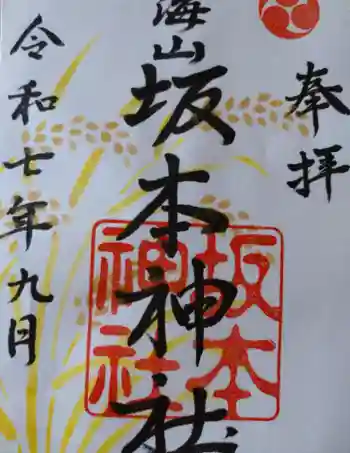 奉拝
海山
坂本神社
令和七年九月
坂本
神社